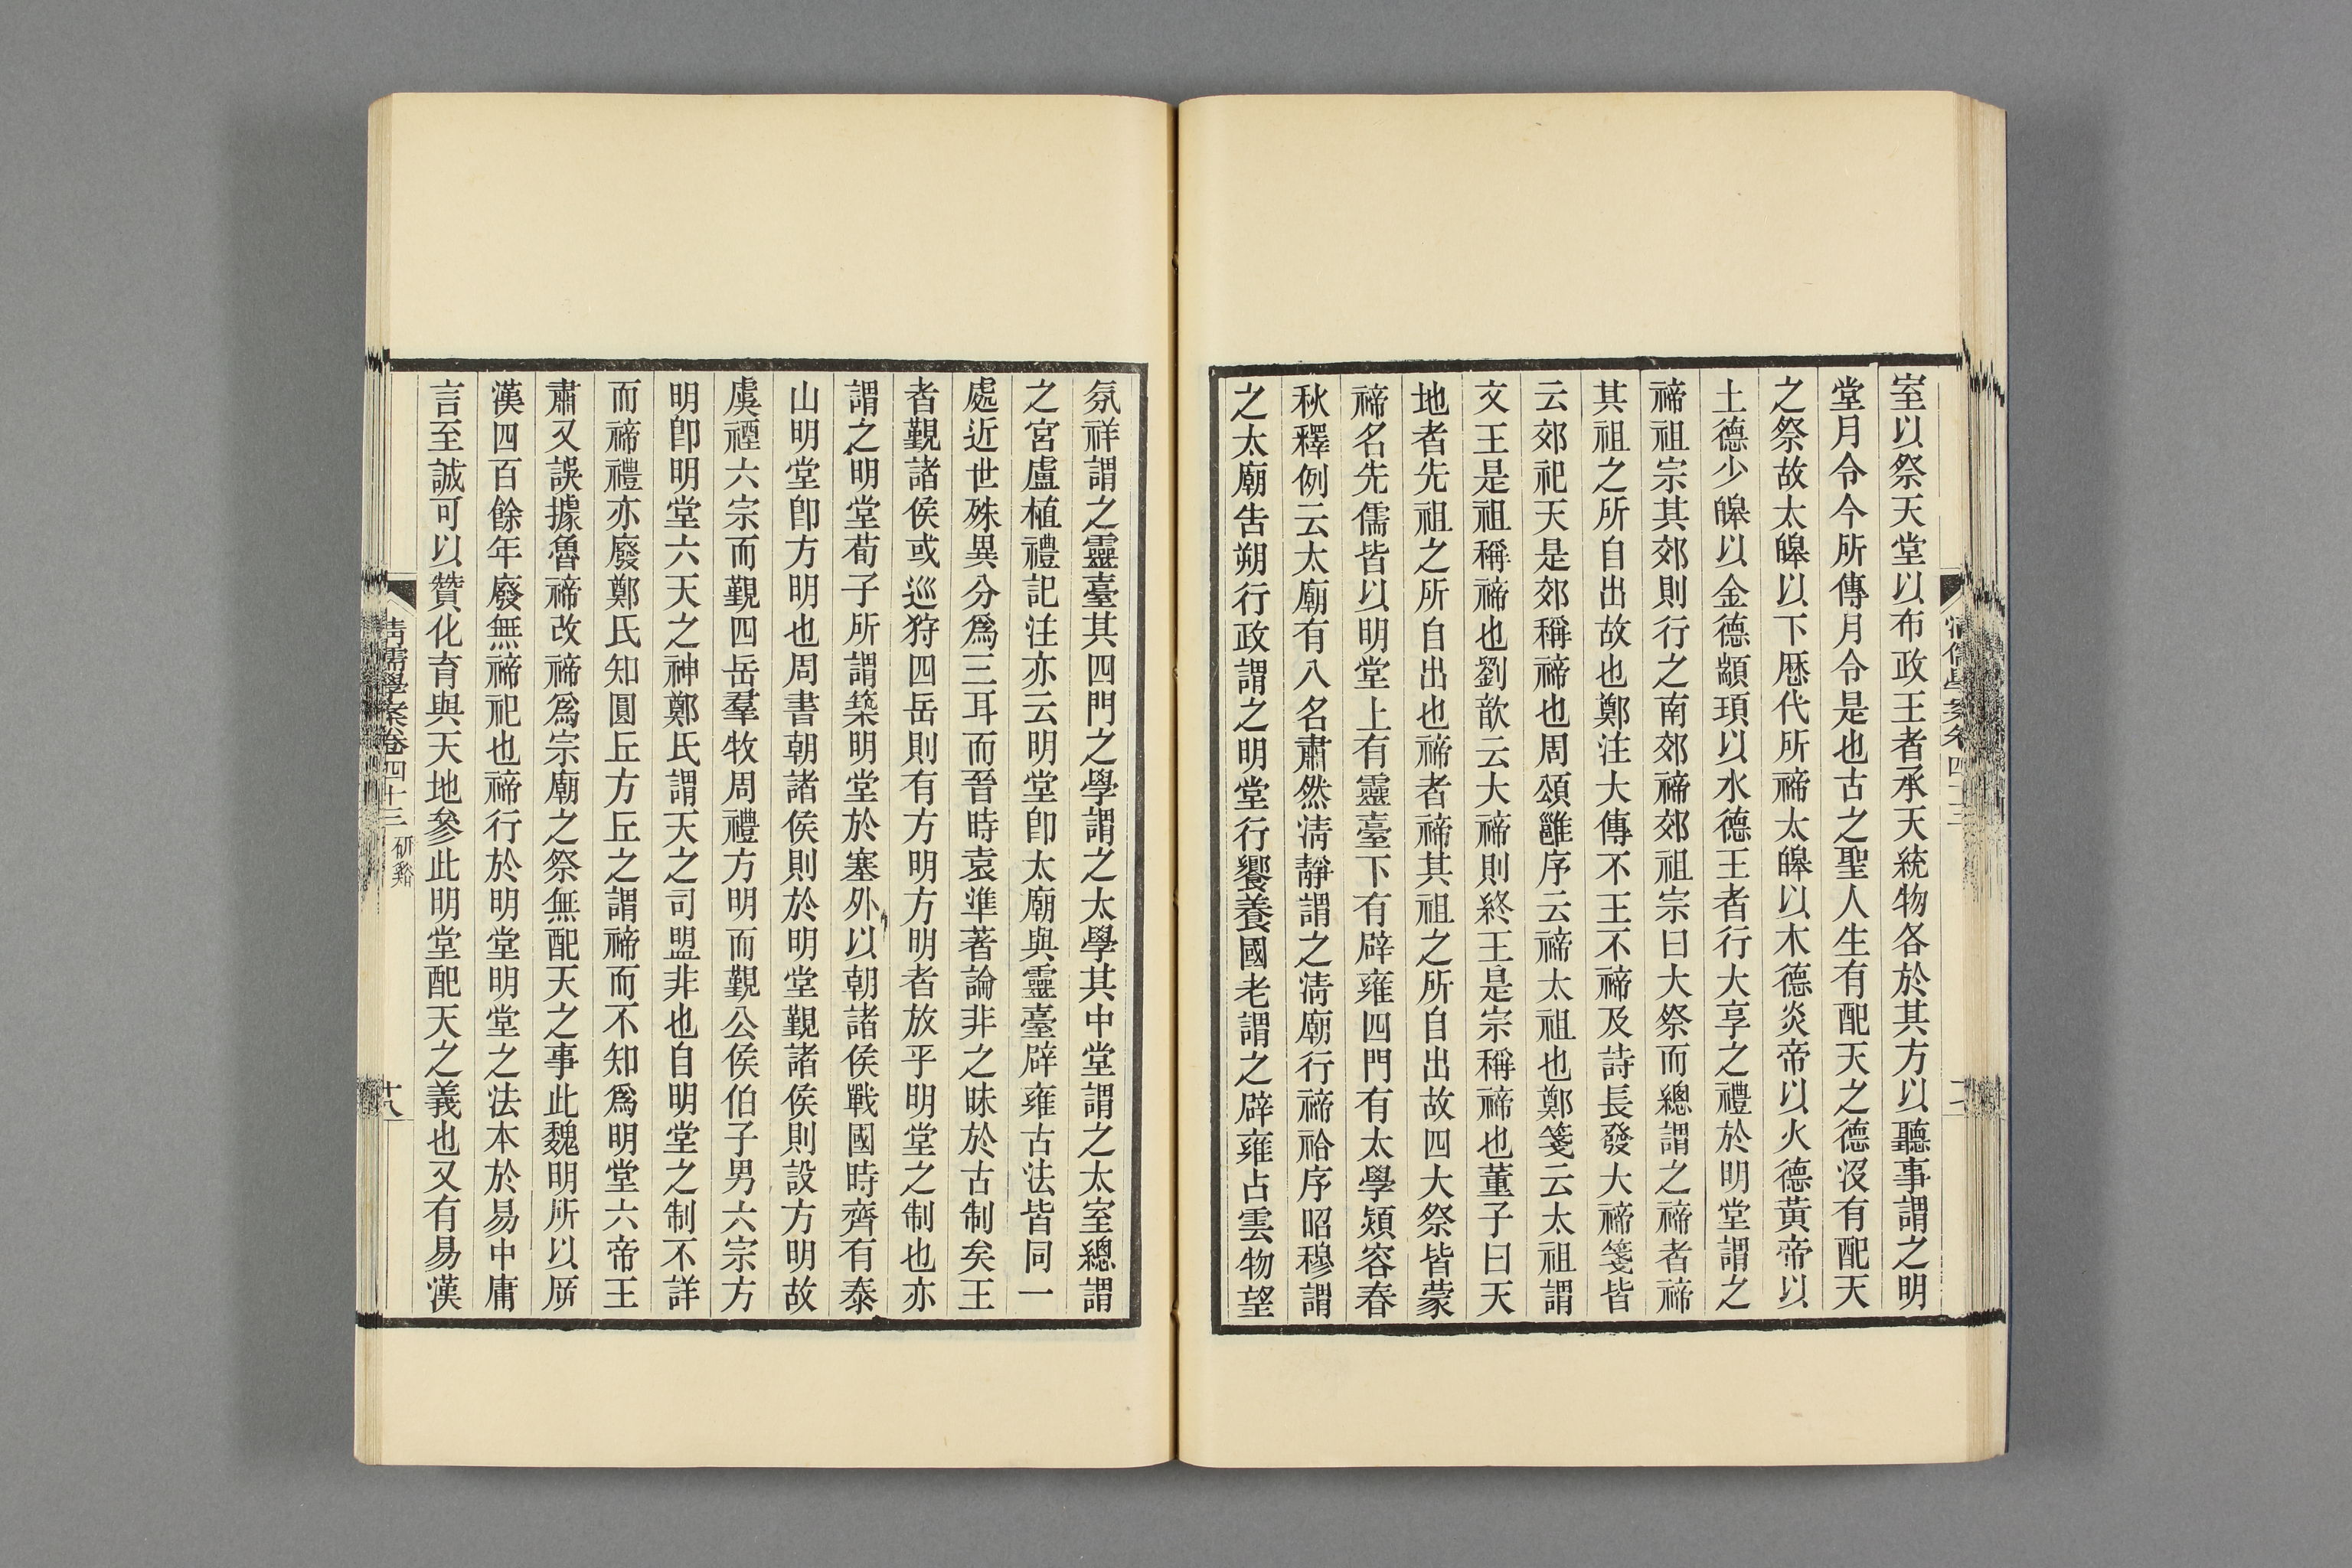 室以祭天堂以布政王者承天統物各於其方以聽事謂之明
堂月令今所傳月令是也古之聖人生有配天之德沒有配天
之祭故太皞以下歷代所禘太皞以木德炎帝以火德黃帝以
土德少皞以金德顓頊以水德王者行大享之禮於明堂謂之
禘祖宗其郊則行之南郊禘郊祖宗曰大祭而總謂之禘者禘
其祖之所自出故也鄭注大傳不王不禘及詩長發大禘箋皆
云郊祀天是郊稱禘也周頌雝序云禘太祖也鄭箋云太祖謂
文王是祖稱禘也劉歆云大禘則終王是宗稱禘也董子曰天
地者先祖之所自出也禘者禘其祖之所自出故四大祭皆蒙
禘名先儒皆以明堂上有靈臺下有辟雍四門有太學潁容春
秋釋例云太廟有八名肅然淸靜謂之淸廟行禘祫序昭穆謂
之太廟告朔行政謂之明堂行饗養國老謂之辟雍占雲物望
氛祥謂之靈臺其四門之學謂之太學其中堂謂之太室總謂
之宮盧植禮記注亦云明堂卽太廟與靈臺辟雍古法皆同一
處近世殊異分爲三耳而晉時袁準著論非之昧於古制矣王
者覲諸侯或巡狩四岳則有方明方明者放乎明堂之制也亦
謂之明堂荀子所謂築明堂於塞外以朝諸侯戰國時齊有泰
山明堂卽方明也周書朝諸侯則於明堂覲諸侯則設方明故
虞禋六宗而覲四岳羣牧周禮方明而覲公侯伯子男六宗方
明卽明堂六天之神鄭氏謂天之司盟非也自明堂之制不詳
而禘禮亦廢鄭氏知圓丘方丘之謂禘而不知爲明堂六帝王
肅又誤據魯禘改禘爲宗廟之祭無配天之事此魏明所以廢
漢四百餘年廢無禘祀也禘行於明堂明堂之法本於易中庸
言至誠可以贊化育與天地參此明堂配天之義也又有易漢
淸儒學案卷四十三 研谿
十八